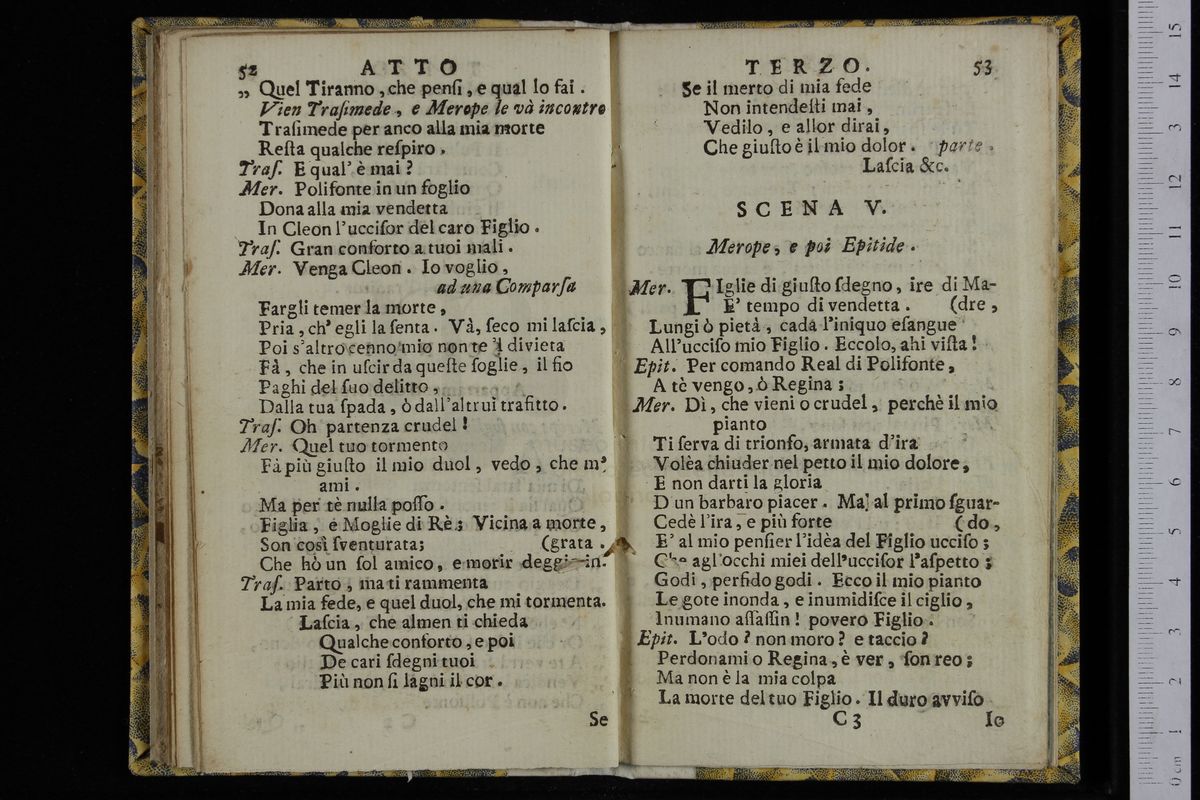 52 ATTO
„ Quel Tiranno, che penſi, e qual lo fai.
Vien Traſimede, e Merope le và incontro
Traſimede per anco alla mia morte
Reſta qualche reſpiro.
Traſ. E qual' è mai?
Mer. Polifonte in un foglio
Dona alla mia vendetta
In Cleon l'ucciſor del caro Figlio.
Traſ. Gran conforto a tuoi mali.
Mer. Venga Cleon. Io voglio,
ad una Comparſa
Fargli temer la morte,
Pria, ch' egli la ſenta. Và, ſeco mi laſcia,
Poi s'altro cenno mio non te 'l divieta
Fà, che in uſcir da queſte ſoglie, il fio
Paghi del ſuo delitto,
Dalla tua ſpada, ò dall'altrui trafitto.
Traſ. Oh partenza crudel!
Mer. Quel tuo tormento
Fà più giuſto il mio duol, vedo, che m'
ami.
Ma per tè nulla poſſo.
Figlia, e Moglie di Rè; Vicina a morte,
Son così ſventurata; (grata.
Che hò un ſol amico, e morir deggio in-
Traſ. Parto, ma ti rammenta
La mia fede, e quel duol, che mi tormenta.
Laſcia, che almen ti chieda
Qualche conforto, e poi
De cari ſdegni tuoi
Più non ſi lagni il cor.
Se
TERZO. 53
Se il merto di mia fede
Non intendeſti mai,
Vedilo, e allor dirai,
Che giuſto è il mio dolor. parte.
Laſcia &c.
SCENA V.
Merope, e poi Epitide.
Mer. FIglie di giuſto ſdegno, ire di Ma-
E' tempo di vendetta. (dre,
Lungi ò pietà, cada l'iniquo eſangue
All'ucciſo mio Figlio. Eccolo, ahi viſta!
Epit. Per comando Real di Polifonte,
A tè vengo, ò Regina;
Mer. Dì, che vieni o crudel, perchè il mio
pianto
Ti ſerva di trionfo, armata d'ira
Volèa chiuder nel petto il mio dolore,
E non darti la gloria
D un barbaro piacer. Ma al primo ſguar-
Cedè l'ira, e più forte (do,
E' al mio penſier l'idèa del Figlio ucciſo;
Che agl'occhi miei dell'ucciſor l'aſpetto;
Godi, perfido godi. Ecco il mio pianto
Le gote inonda, e inumidiſce il ciglio,
Inumano aſſaſſin! povero Figlio.
Epit. L'odo? non moro? e taccio?
Perdonami o Regina, è ver, ſon reo;
Ma non è la mia colpa
La morte del tuo Figlio. Il duro avviſo
C 3 Io
15
14
13
12
11
10
9
8
7
6
5
4
3
2
1
0 cm